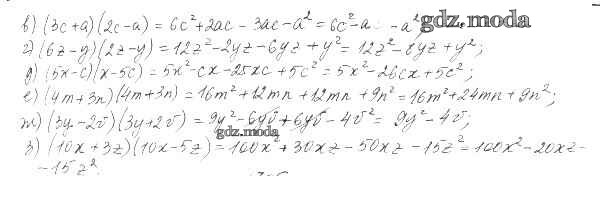 в) (3c+a)(2c-a) = 6c²+2ac - 3ac-a² = 6c²-ac-a²; gdz.moda
г) (6z-y)(2z-y)=12z²-2yz-6yz+y²=12z²-8yz+y²;
д) (5x-c)(x-5c)=5x²-cx-25xc+5c²=5x²-26cx+5c²;
е) (4m+3n)(4m+3n)=16m²+12mn+12mn+9n²=16m²+24mn+9n²;
ж) (3y-2v)(3y+2v) = 9y²-6yv+6yv-4v²= 9y²-4v;
gdz.moda
з) (10x+3z)(10x-5z)=100x²+30xz-50xz-15z²=100x²-20xz-
-15z².